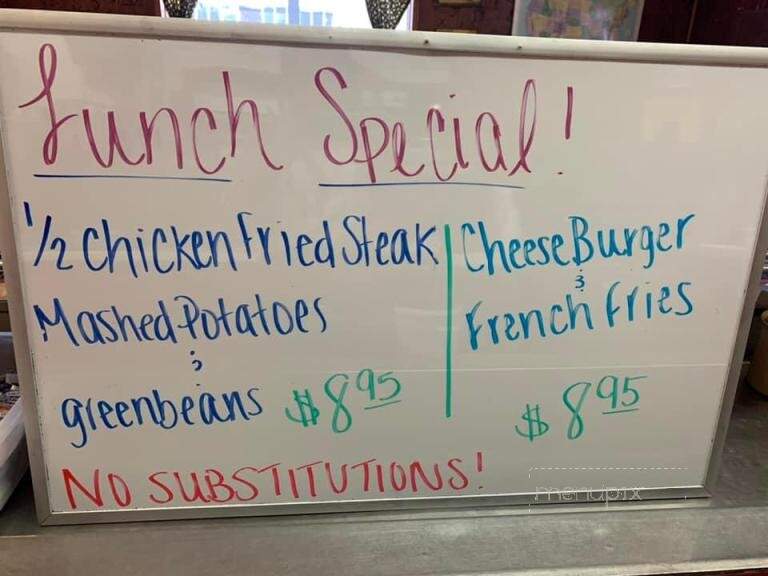 Lunch Special!
1/2 Chicken Fried Steak
Mashed Potatoes
&
greenbeans $8.95
CheeseBurger
&
French Fries
$8.95
NO SUBSTITUTIONS!
menupix